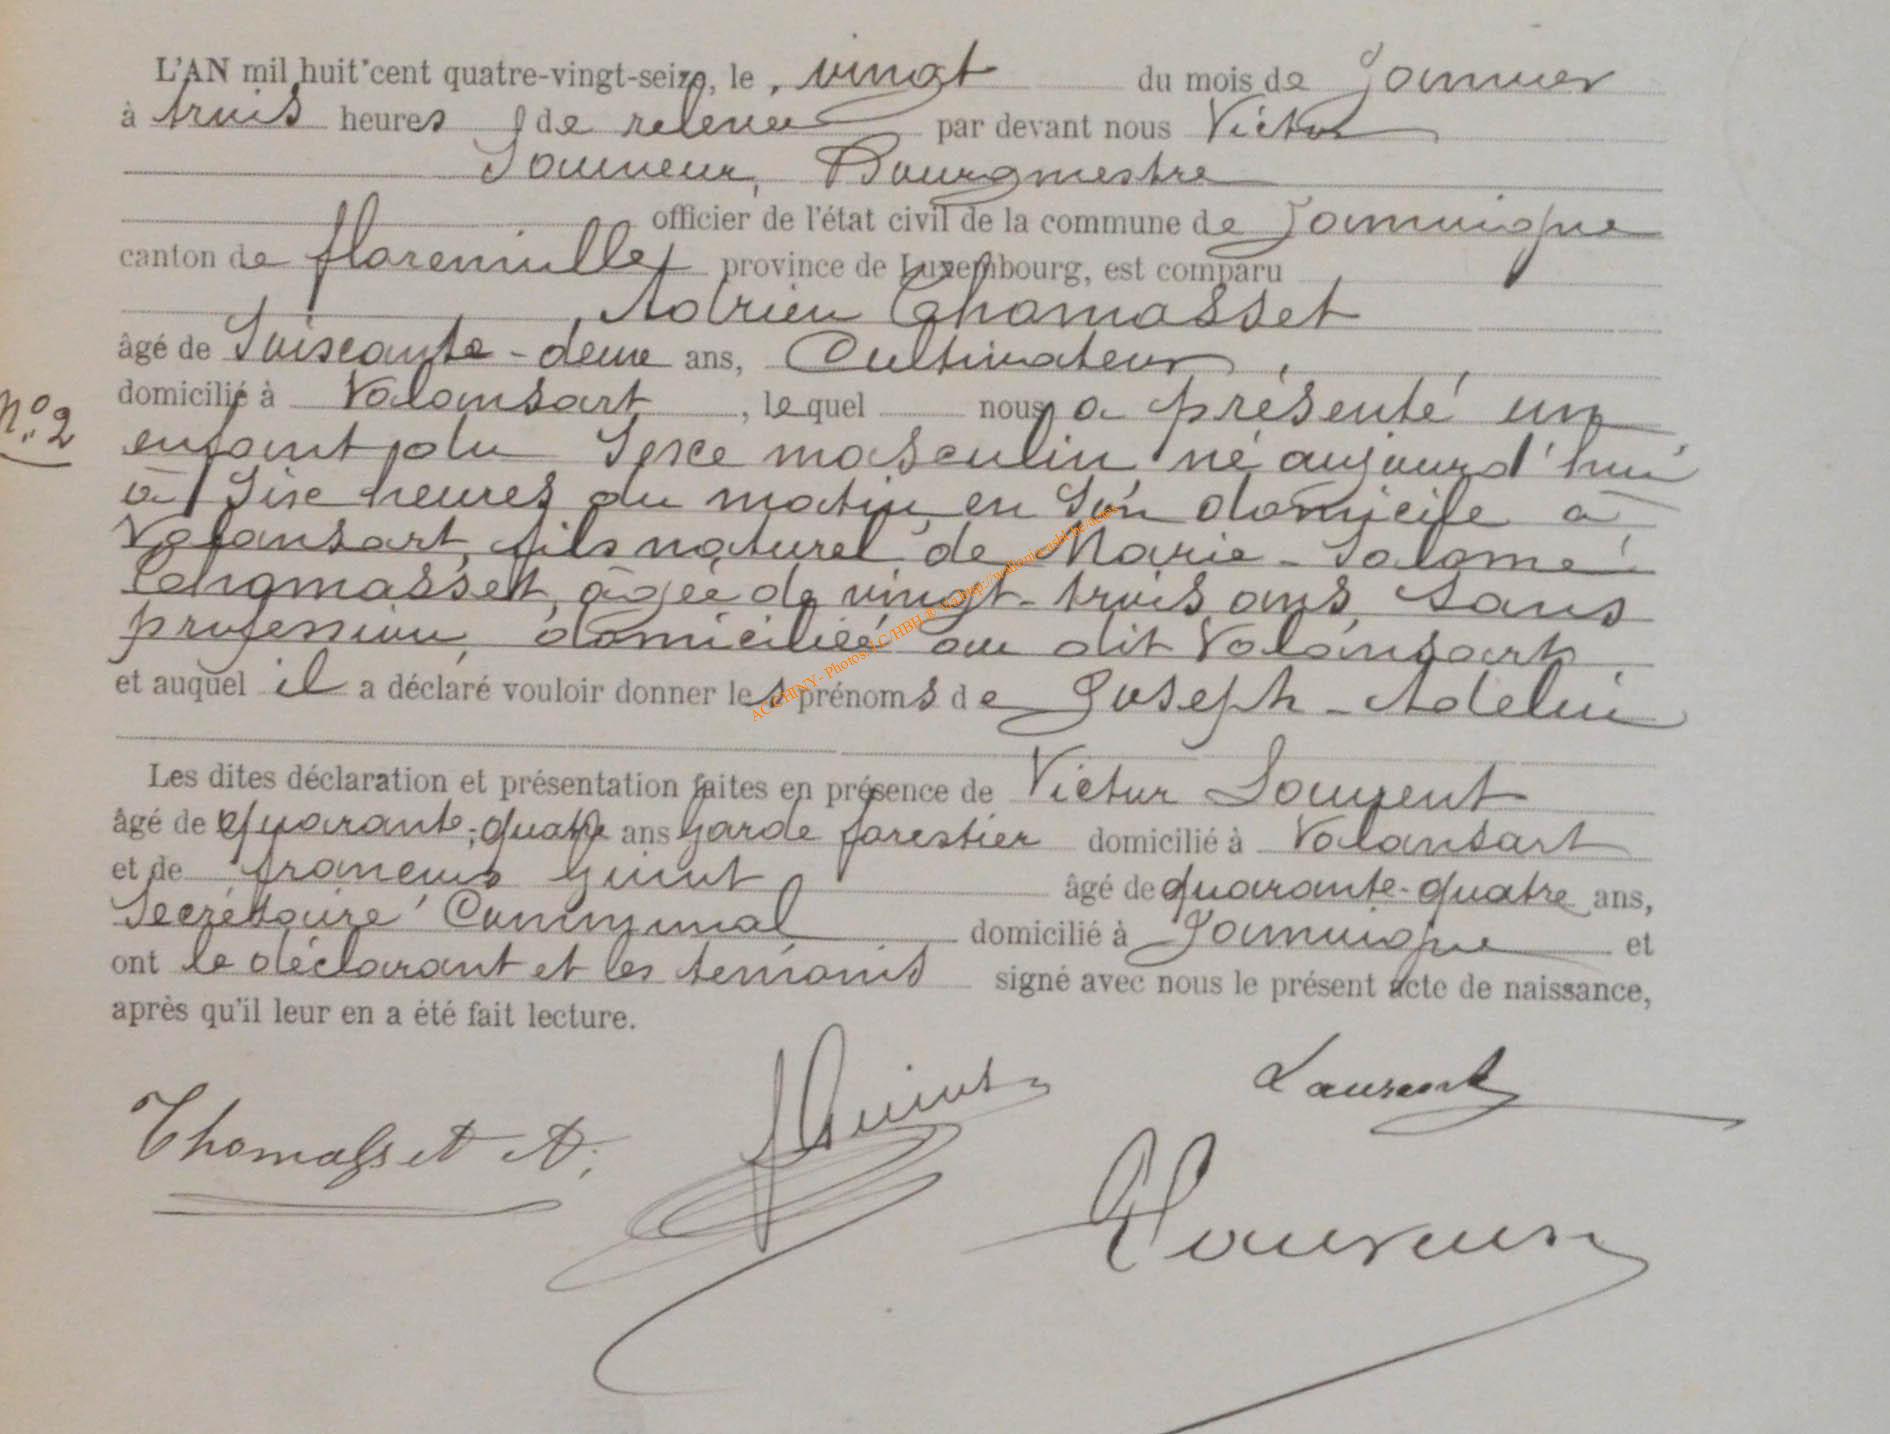 L'AN mil huit cent quatre-vingt-seize, le vingt du mois de Janvier
à trois heures de relevée par devant nous Victor
Bourgmestre
officier de l'état civil de la commune de Jamoigne
canton de florenville province de Luxembourg, est comparu
Adrien Thomasset
âgé de Soixante-deux ans, Cultivateur,
domicilié à Valansart, lequel nous a présenté un
enfant du Sexe masculin, né aujourd'hui
à Six heures du matin, en Son domicile à
Valansart, fils naturel de Marie-Salomé
Thomasset, âgée de vingt-trois ans, sans
profession, domiciliée au dit Valansart
et auquel il a déclaré vouloir donner les prénoms de Joseph-Adelin
Les dites déclaration et présentation faites en présence de Victor Laurent
âgé de quarante-quatre ans garde forestier domicilié à Valansart
et de françois Guiot âgé de quarante-quatre ans,
Secrétaire Communal domicilié à Jamoigne et
ont le déclarant et les témoins signé avec nous le présent acte de naissance,
après qu'il leur en a été fait lecture.
N° 2
Thomasset A.
f Guiot
Laurent
ACCHINY- Photos J.C/HBH ®